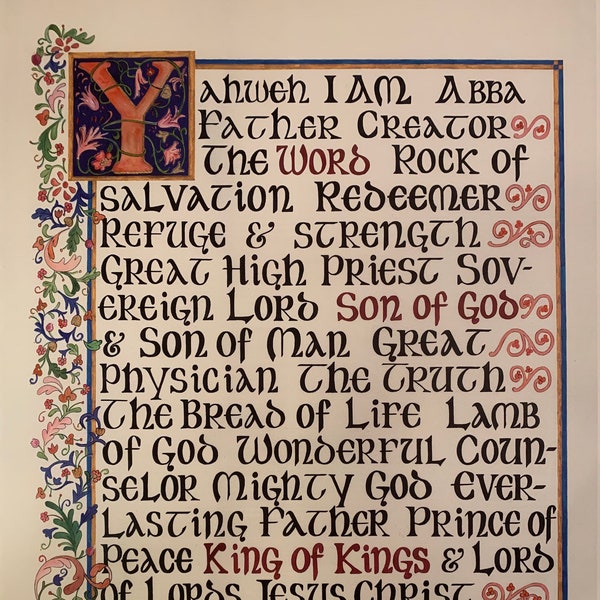 Yahweh I AM Abba
Father Creator
The Word Rock of
Salvation Redeemer
Refuge & Strength
Great High Priest Sov-
ereign Lord Son of God
& Son of Man Great
Physician The Truth
The Bread of Life Lamb
of God Wonderful Coun-
selor Mighty God Ever-
lasting Father Prince of
Peace King of Kings & Lord
of Lords Jesus Christ